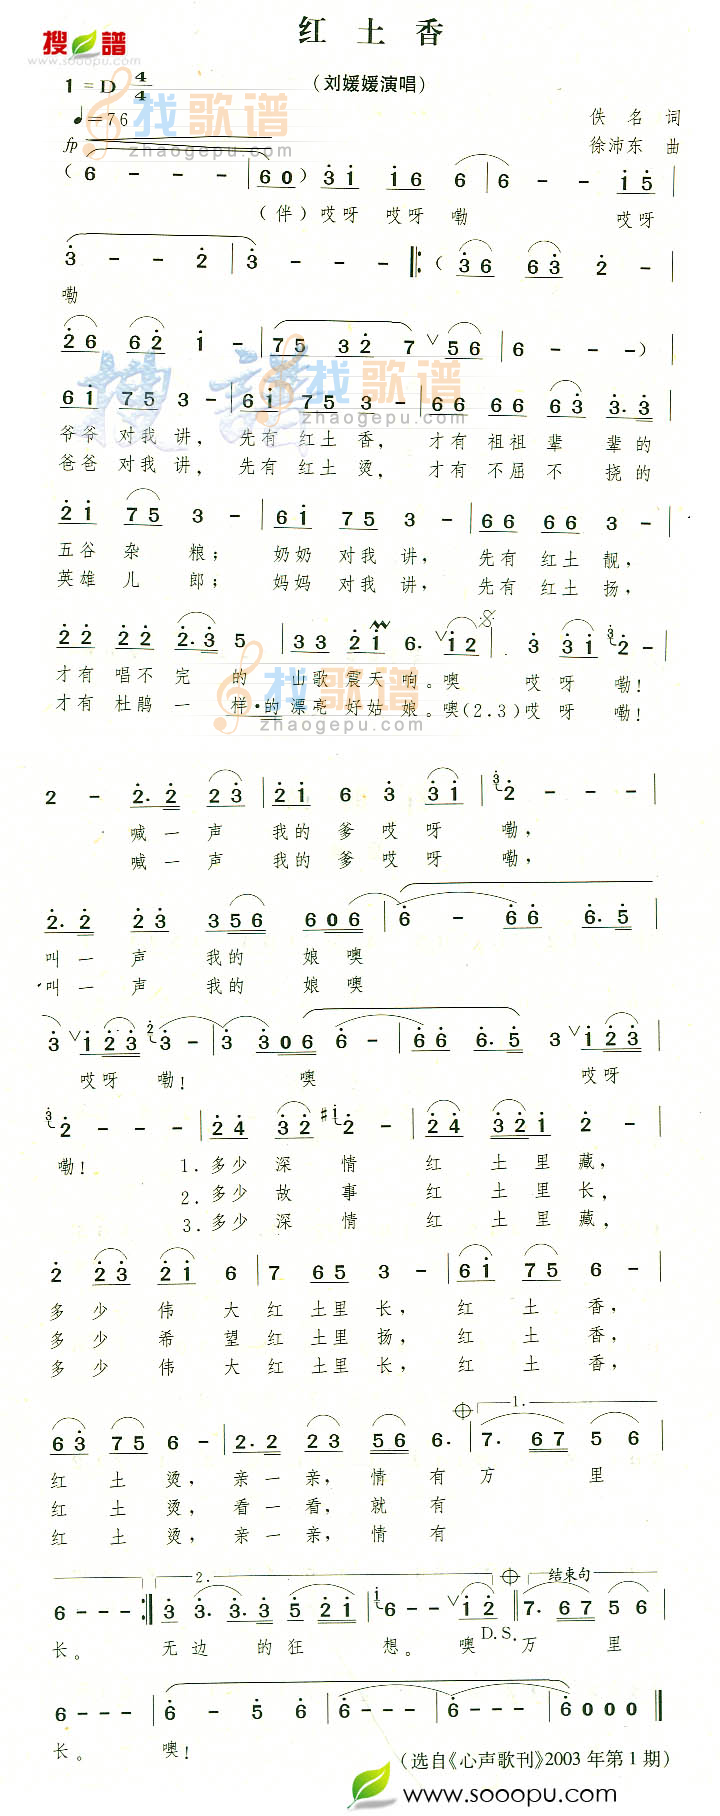 红土香
搜谱
www.sooopu.com
1=D 4/4
(刘媛媛演唱)
♩=76
找歌谱
zhaogepu.com
佚名 词
徐沛东 曲
fp
(6 - - - (60) 3i i6 6 6 - - i5
(伴)哎呀 哎呀 嘞 哎呀
3 - - 2 3 - - - (36 63 2 -
嘞
26 62 i - 75 32 7 56 6 - - -)
找歌谱
zhaogepu.com
6i 75 3 - 6i 75 3 - 66 66 63 3.3
爷爷 对我 讲, 先有 红土 香, 才有 祖祖 辈 辈的
爸爸 对我 讲, 先有 红土 烫, 才有 不屈 不 挠的
2i 75 3 - 6i 75 3 - 66 66 3 -
五谷 杂 粮; 奶奶 对我 讲, 先有 红土 靓,
英雄 儿 郎; 妈妈 对我 讲, 先有 红土 扬,
22 22 2.3 5 33 2i 6. i2 3 33i 2 -
才有 唱不 完 的 山歌 震天 响。噢 哎呀 嘞!
才有 杜鹃 一 样·的 漂亮 好姑 娘。噢(2.3)哎呀 嘞!
找歌谱
zhaogepu.com
2 - 2.2 23 2i 6 3 3i 2 - - -
喊一 声 我的 爹 哎呀 嘞,
喊一 声 我的 爹 哎呀 嘞,
2.2 23 356 606 6 - 66 6.5
叫一 声 我的 娘噢
叫一 声 我的 娘噢
3 i23 3 - 3 306 6 - 66 6.5 3 i23
哎呀 嘞! 噢 哎呀
2 - - - 24 32 #i 2 - 24 32i 2 -
嘞! 1.多少 深 情 红 土里 藏,
2.多少 故 事 红 土里 长,
3.多少 深 情 红 土里 藏,
2 23 2i 6 7 65 3 - 6i 75 6 -
多 少 伟 大 红 土里 长, 红 土 香,
多 少 希 望 红 土里 扬, 红 土 香,
多 少 伟 大 红 土里 长, 红 土 香,
1.
63 75 6 - 2.2 23 56 6. 7. 67 5 6
红 土 烫, 亲一 亲, 情 有 万 里
红 土 烫, 看一 看, 就 有
红 土 烫, 亲一 亲, 情 有
2. 结束句
6 - - - 3 3. 3.3 5 2i 6 - - i2 7. 67 56
长。 无边 的狂 想。噢 D.S. 万 里
6 - - - 6 - 5 6 6 - - - 6 - - - 6000
长。 噢!
(选自《心声歌刊》2003年第1期)
www.sooopu.com